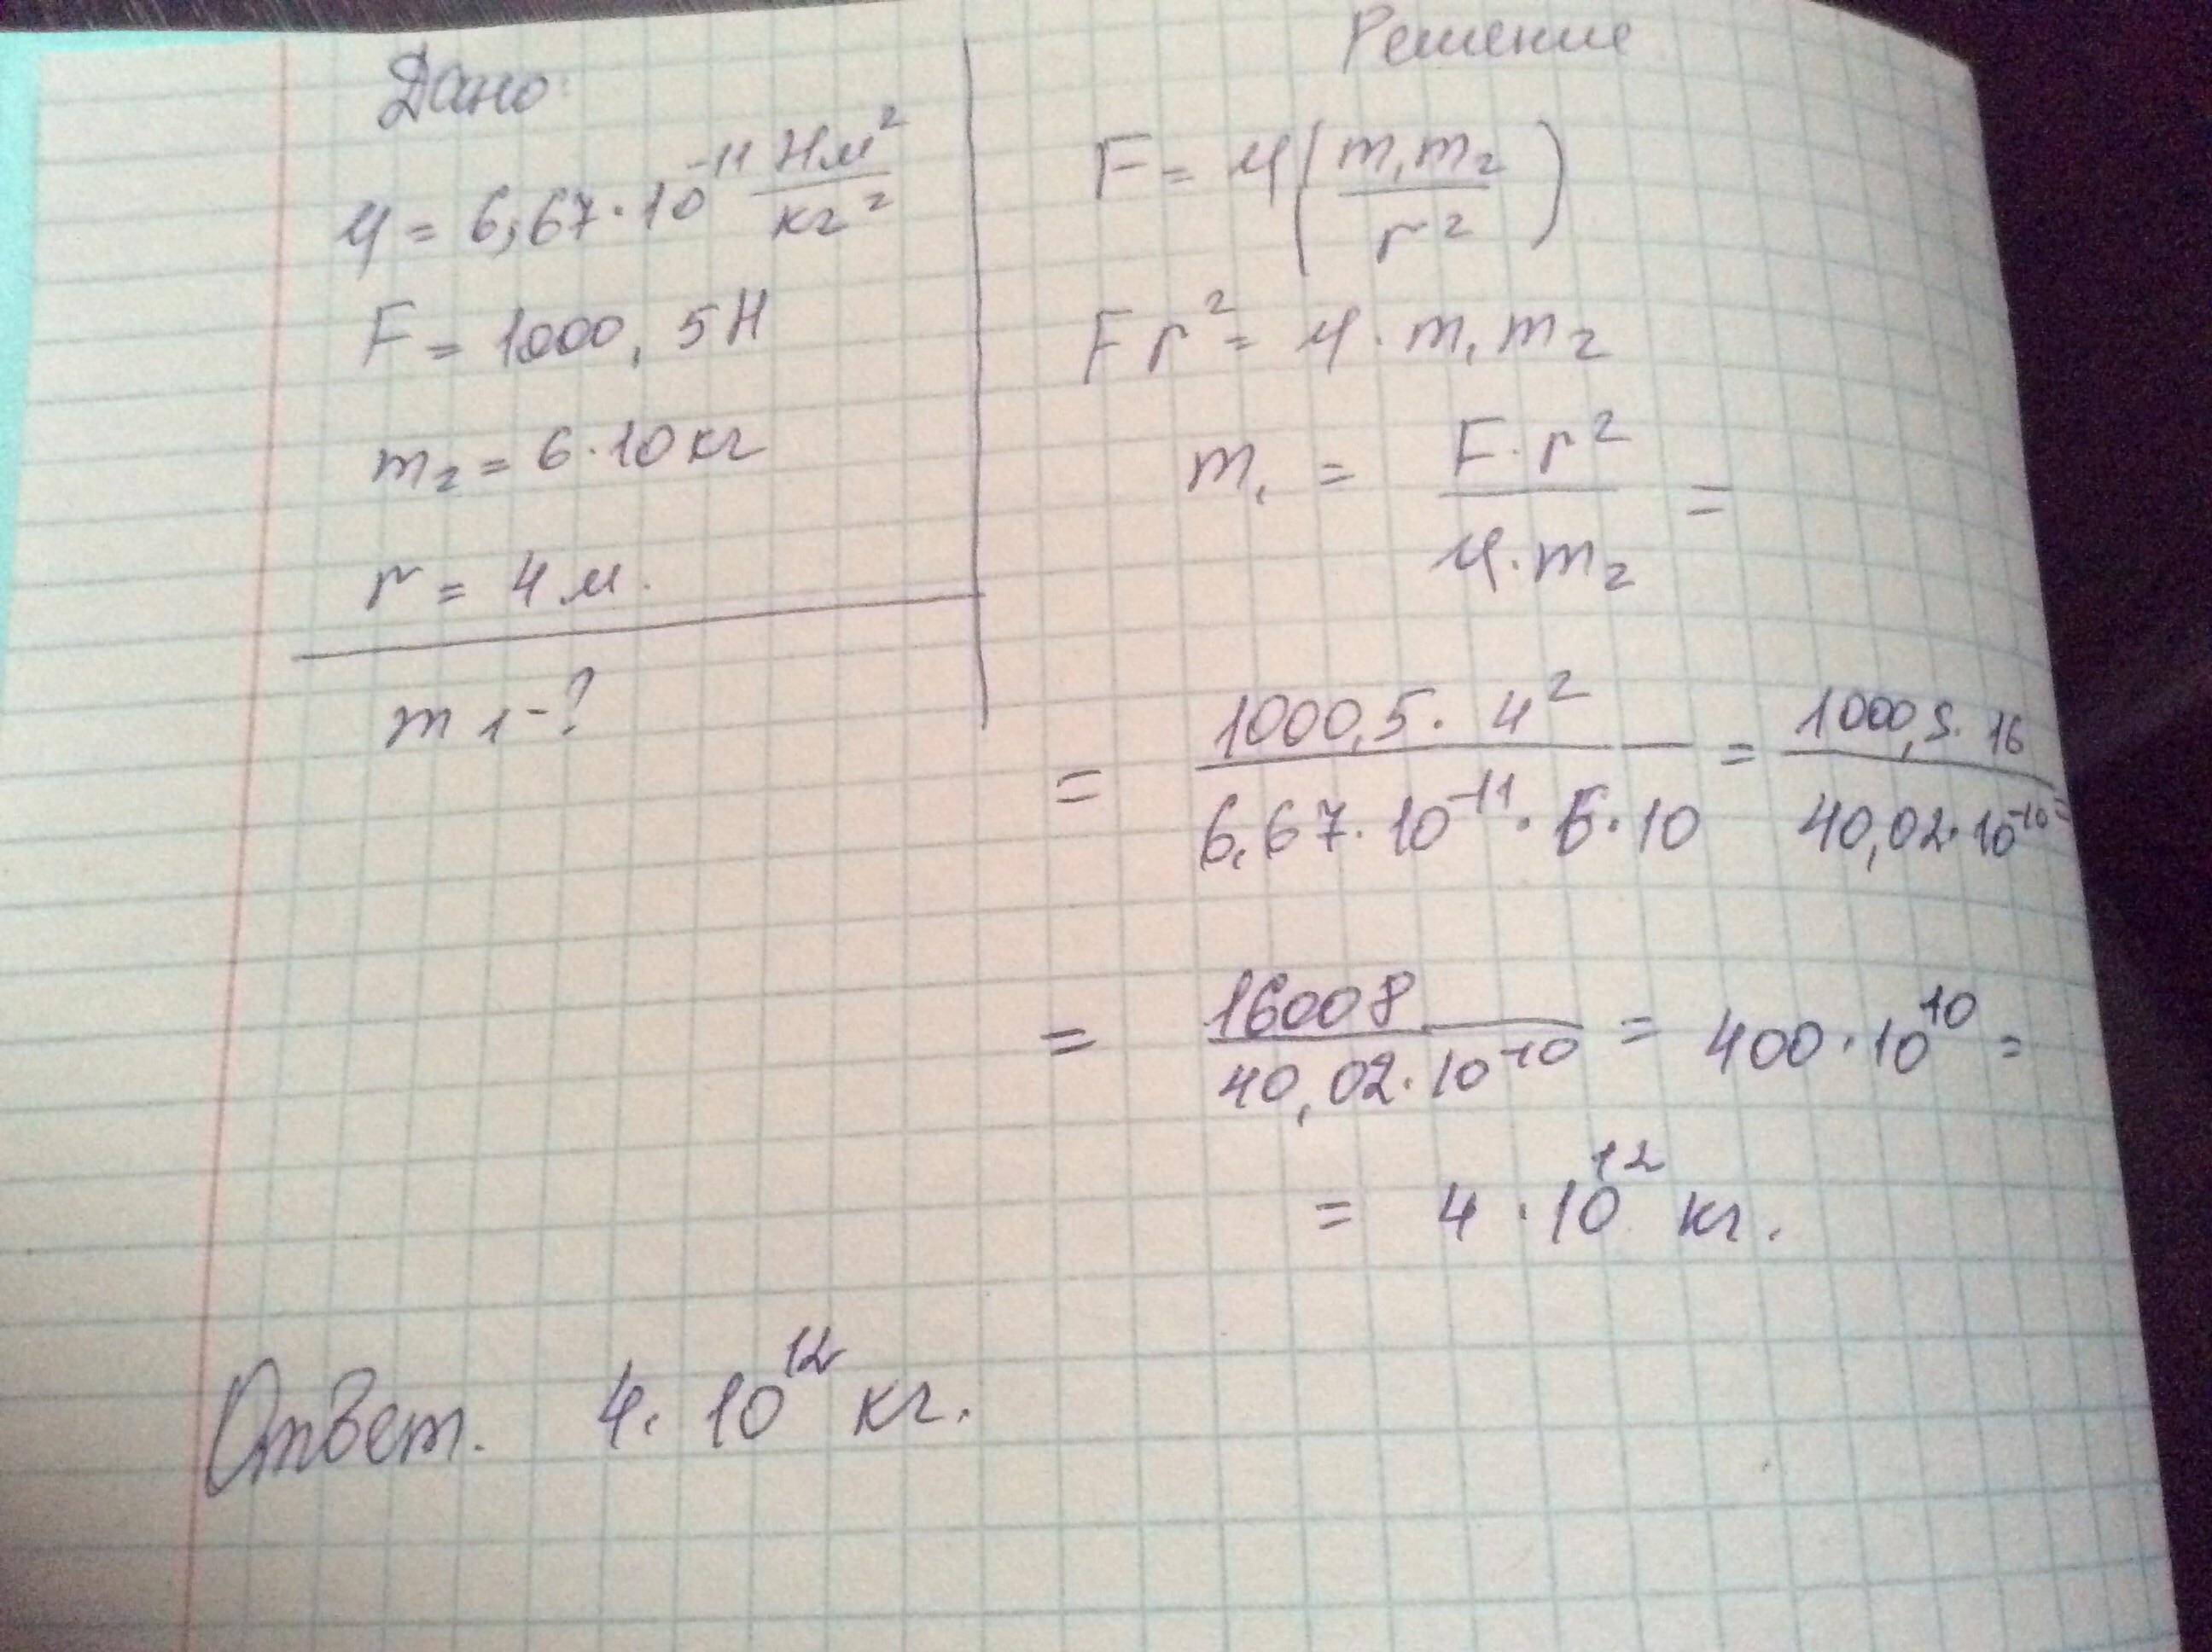 Дано:
γ = 6,67·10⁻¹¹ Нм²/кг²
F = 1000,5Н
m₂ = 6·10кг
r = 4 м.
m 1 -?
Решение
F = γ(m₁m₂/r²)
Fr² = γ·m₁m₂
m₁ = F·r²/γ·m₂ =
= 1000,5·4²/6,67·10⁻¹¹·6·10 = 1000,5·16/40,02·10⁻¹⁰ =
= 16008/40,02·10⁻¹⁰ = 400·10¹⁰ =
= 4·10¹² кг.
Ответ. 4·10¹² кг.